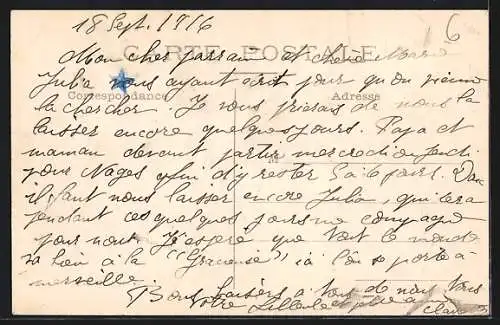 18 Sept. 1916
6
CARTE POSTALE
Mon cher parrain et chère
Julia vous ayant écrit pour qu'on vienne
Correspondance
Adresse
la chercher. Je vous prierais de nous la
laisser encore quelques jours. Papa et
maman devant partir mercredi ou jeudi
pour Nages afin d'y rester 5 à 6 jours. Donc
il faut nous laisser encore Julia, qui sera
pendant ces quelques jours une compagne
pour nous. J'espère que tout le monde
va bien à la "Gracieuse" ici l'on se porte à
merveille.
Bons baisers à tous de nous tous
Votre